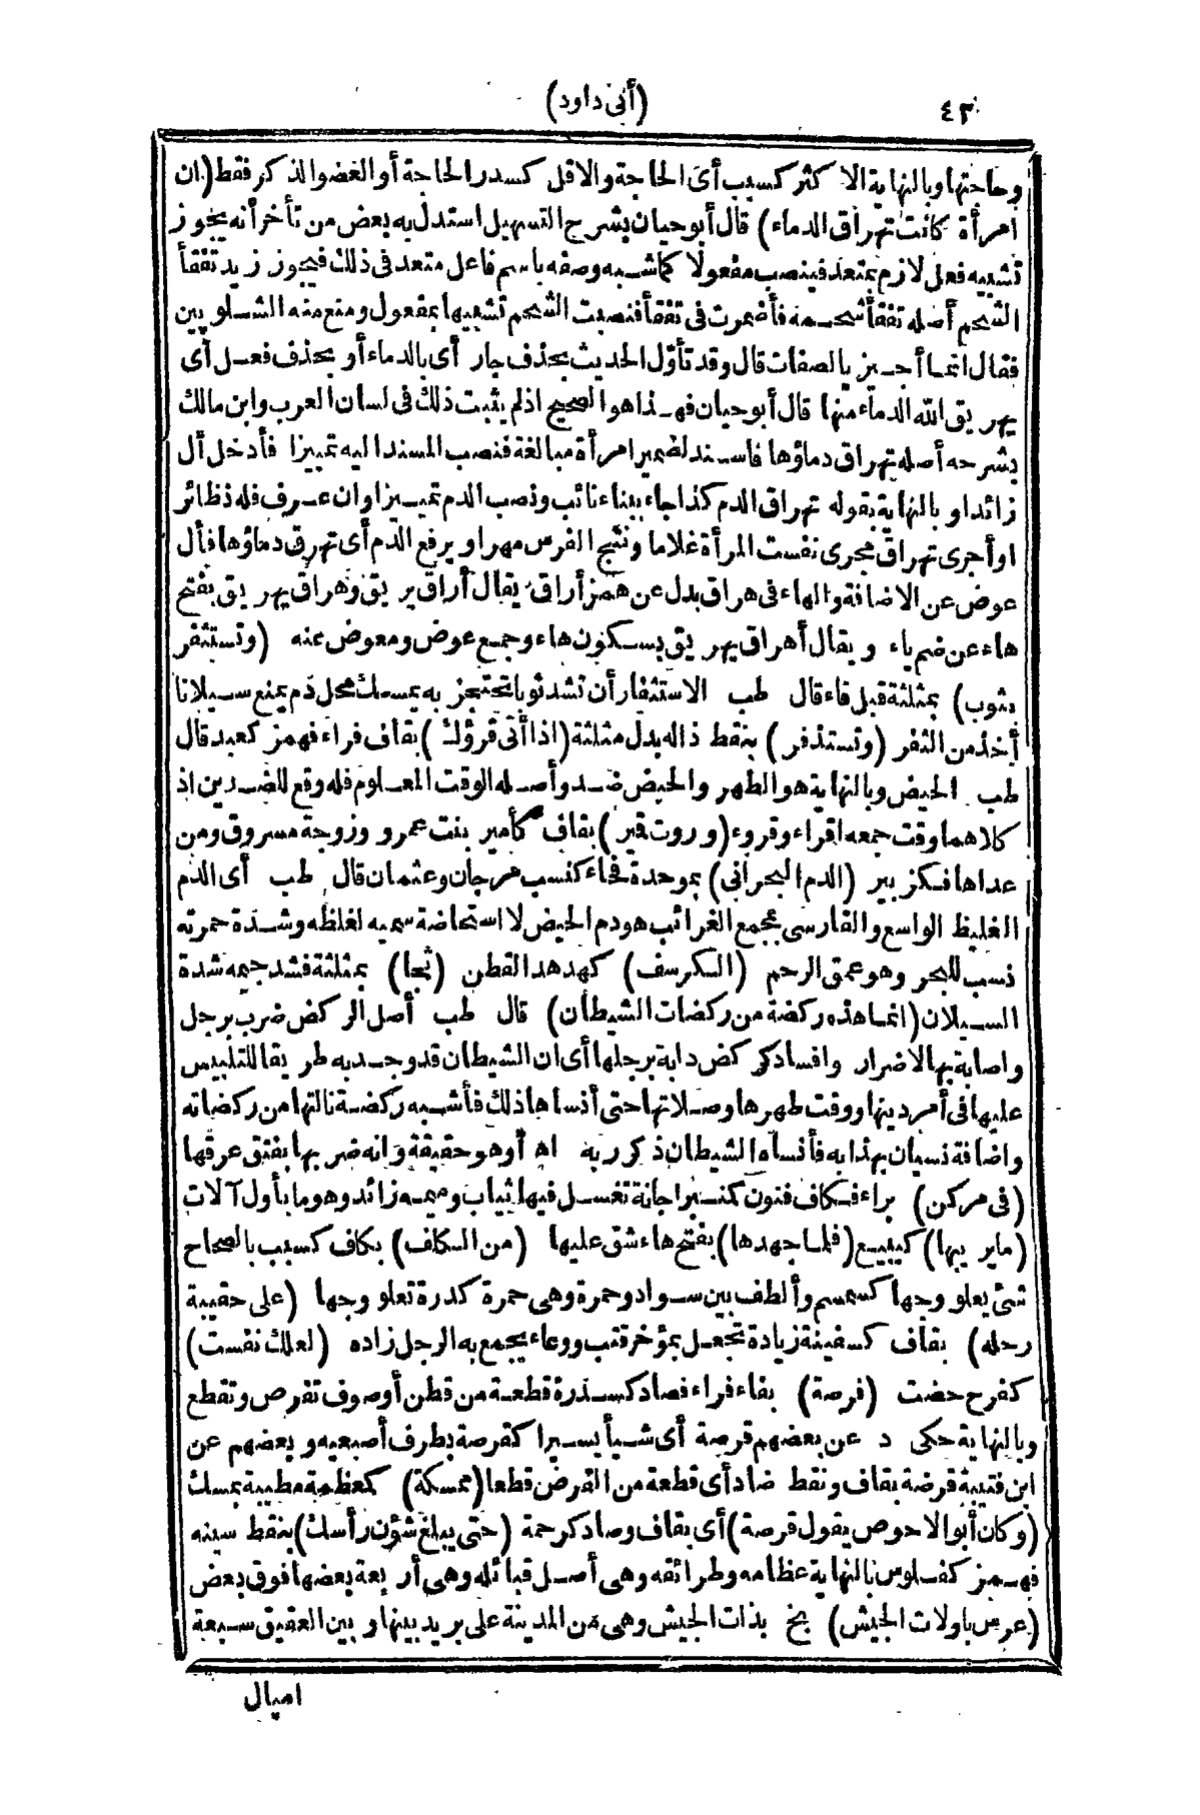 ٤٣ (أبى داود)
وحاجتها وبالنهاية الا كثر كسبب أى الحاجة والاقل كسدر الحاجة أو الغضو الذكر فقط (ان
امرأة كانت تهراق الدماء) قال أبو حيان بشرح التسهيل استدل به بعض من تأخر أنه يجوز
تشبيه فعل لازم بمتعد فينصب مفعولا كما شبه وصفه باسم فاعل متعد فى ذلك فيجوز زيد تفقأ
الشحم أصله تفقأ شحمه فأضمرت فى تفقأ فنصبت الشحم تشبيها بمفعول ومنع منه الشلوبين
فقال انما أجيز بالصفات قال وقد تأول الحديث بحذف جار أى بالدماء أو بحذف فعل أى
يهريق الله الدماء منها قال أبو حيان فهذا هو الصحيح اذ لم يثبت ذلك فى لسان العرب وابن مالك
بشرحه أصله تهراق دماؤها فاسند لضمير امرأة مبالغة فنصب المسند اليه تمييزا فأدخل أل
زائدا وبالنهاية بقوله تهراق الدم كذا جاء ببناء نائب ونصب الدم تمييزا وان عرف فله نظائر
او أجرى تهراق مجرى نفست المرأة غلاما ونتج الفرس مهرا ويرفع الدم أى تهرق دماؤها فأل
عوض عن الاضافة والهاء فى هراق بدل عن همز أراق يقال أراق يريق وهراق يهريق بفتح
هاء عن ضم ياء ويقال أهراق يهريق بسكون هاء وجمع عوض ومعوض عنه (وتستثفر
بثوب) بمثلثة قبل فاء قال طب الاستثفار أن تشد ثوبا تحتجز به يمسك محل دم يمنع سيلانا
أخذ من الثفر (وتستذفر) بنقط ذاله بدل مثلثة (اذا أتى قرؤك) بقاف فراء فهمز كعبد قال
طب الحيض وبالنهاية هو الطهر والحيض ضد وأصله الوقت المعلوم فله وقع للضدين اذ
كلاهما وقت جمعه اقراء وقروء (وروت قمير) بقاف كأمير بنت عمرو وزوجة مسروق ومن
عداها فكزبير (الدم البحرانى) بموحدة فحاء كنسب مرجان وعثمان قال طب أى الدم
الغليظ الواسع والفارسى بمجمع الغرائب هو دم الحيض لا استحاضة سميه لغلظه وشدة حمرته
نسب للبحر وهو عمق الرحم (الكرسف) كهدهد القطن (ثجا) بمثلثة فشد جيمه شدة
السيلان (انما هذه ركضة من ركضات الشيطان) قال طب أصل الركض ضرب برجل
واصابة بها الاضرار وافساد كركض دابة برجلها أى ان الشيطان قد وجد به طريقا للتلبيس
عليها فى أمر دينها ووقت طهرها وصلاتها حتى أنساها ذلك فأشبه ركضة نالتها من ركضاته
واضافة نسيان بهذا به فأنساه الشيطان ذكر ربه اه أو هو حقيقة وانه ضربها بفتق عرقها
(فى مركن) براء فكاف فنون كمنبر اجانة تغسل فيها ثياب وميمه زائد وهو ما بأول آلات
(ما يريبها) كيبيع (فلما جهدها) بفتح هاء شق عليها (من الكلف) بكاف كسبب بالصحاح
شئ يعلو وجها كسمسم وألطف بين سواد وحمرة وهى حمرة كدرة تعلو وجها (على حقيبة
رحله) بقاف كسفينة زيادة تجعل بمؤخر قتب ووعاء يجمع به الرجل زاده (لعلك نفست)
كفرح حضت (فرصة) بفاء فراء فصاد كسدرة قطعة من قطن أو صوف تقرص وتقطع
وبالنهاية حكى د عن بعضهم قرصة أى شيأ يسيرا كقرصة بطرف أصبعيه وبعضهم عن
ابن قتيبة قرضة بقاف ونقط ضاد أى قطعة من القرض قطعا (ممسكة) كمعظمة مطيبة بمسك
(وكان أبو الاحوص يقول قرصة) أى بقاف وصاد كرحمة (حتى يبلغ شؤن رأسك) بنقط سينه
فهمز كفلوس نالنهاية عظامه وطرائقه وهى أصل قبائله وهى أربعة بعضها فوق بعض
(عرس باولات الجيش) بخ بذات الجيش وهى من المدينة على بريد بينها وبين العقيق سبعة
اميال